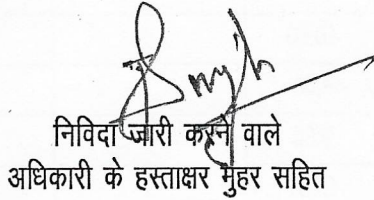 निविदा जारी करने वाले
अधिकारी के हस्ताक्षर मुहर सहित